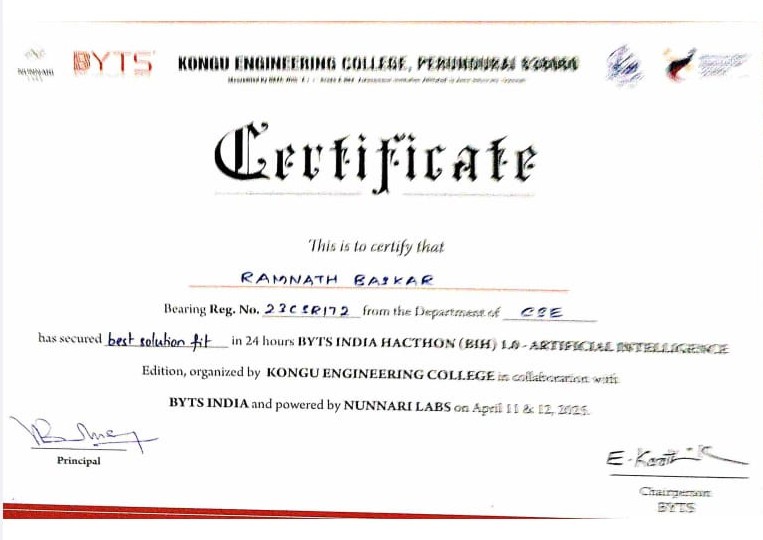 NUNNARI
BYTS
KONGU ENGINEERING COLLEGE, PERUNDURAI
Certificate
This is to certify that
RAMNATH BASKAR
Bearing Reg. No. 23CSR172 from the Department of CSE
has secured best solution fit in 24 hours BYTS INDIA HACTHON (BIH) 1.0 - ARTIFICIAL INTELLIGENCE
Edition, organized by KONGU ENGINEERING COLLEGE in collaboration with
BYTS INDIA and powered by NUNNARI LABS on April 11 & 12, 2025.
Principal
E. Karthik
Chairperson
BYTS